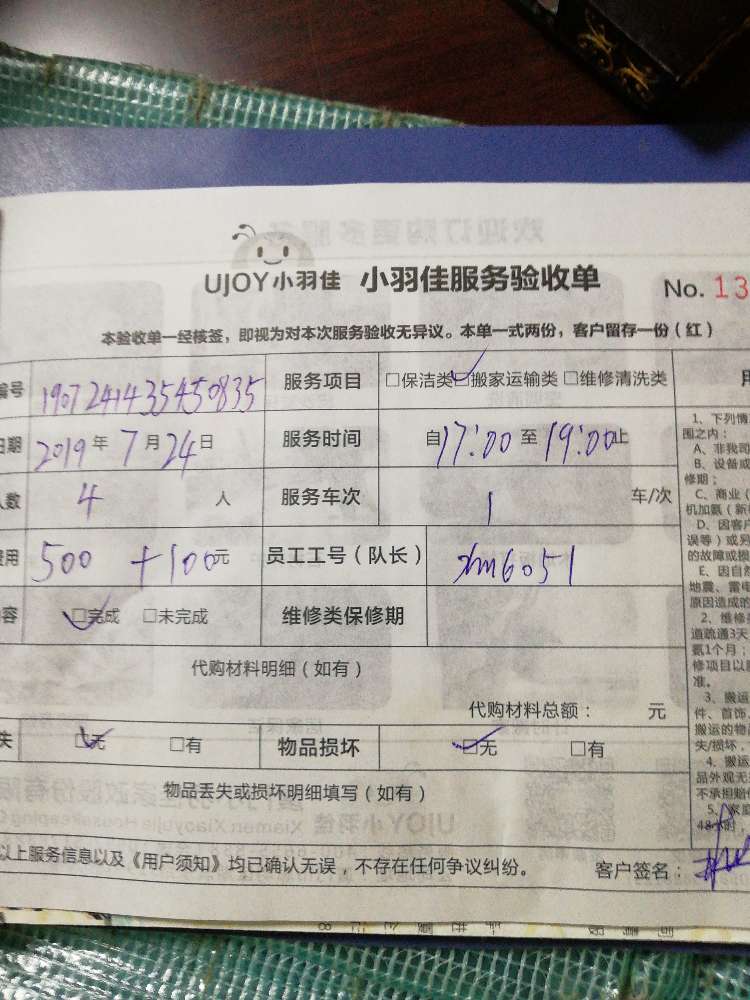 UJOY小羽佳 小羽佳服务验收单 No. 13
本验收单一经核签，即视为对本次服务验收无异议。本单一式两份，客户留存一份（红）
编号 1907241435450835 服务项目 □保洁类 □搬家运输类 □维修清洗类
日期 2019年7月24日 服务时间 自17:00至19:00止
人数 4 人 服务车次 1 车/次
费用 500 +100元 员工工号（队长） xm6051
容 □完成 □未完成 维修类保修期
代购材料明细（如有）
代购材料总额： 元
失 □无 □有 物品损坏 □无 □有
物品丢失或损坏明细填写（如有）
以上服务信息以及《用户须知》均已确认无误，不存在任何争议纠纷。 客户签名：
用
1、下列情
围之内：
A、非我司
B、设备或
修期；
C、商业（
机加氨（新
D、因客户
误等）或另
的故障或损
E、因自然
地震、雷电
原因造成的
2、维修
道疏通3天
氨1个月；
修项目以
准。
3、搬运
件、首饰
搬运的物品
失/损坏，
4、搬运
品外观无
不承担赔
5、家庭
48小时